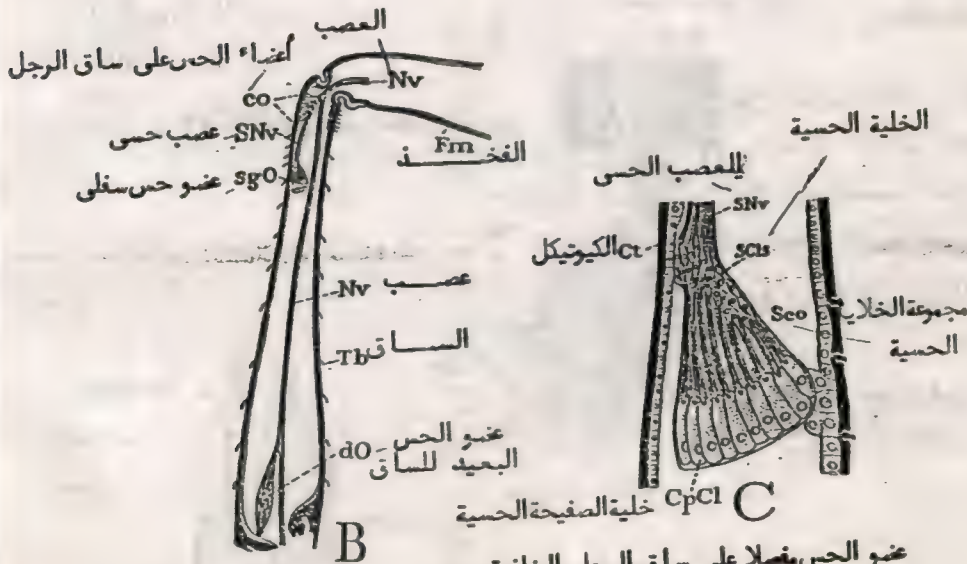 العصب
أعضاء الحس على ساق الرجل
Nv
co
SNv عصب حسى
sgO عضو حس سفلى
Fm
الفخـــــذ
Nv عصــب
Tb الســـاق
dO عضــو الحس
البعيد للساق
B
الخلية الحسية
للعصب الحسى
SNv
Ct الكيوتيكل
SCls
Sco
مجموعة الخلايا
الحسية
CpCl خلية الصفيحة الحسية
C
عضو الحس مفصلا على ساق الرجل